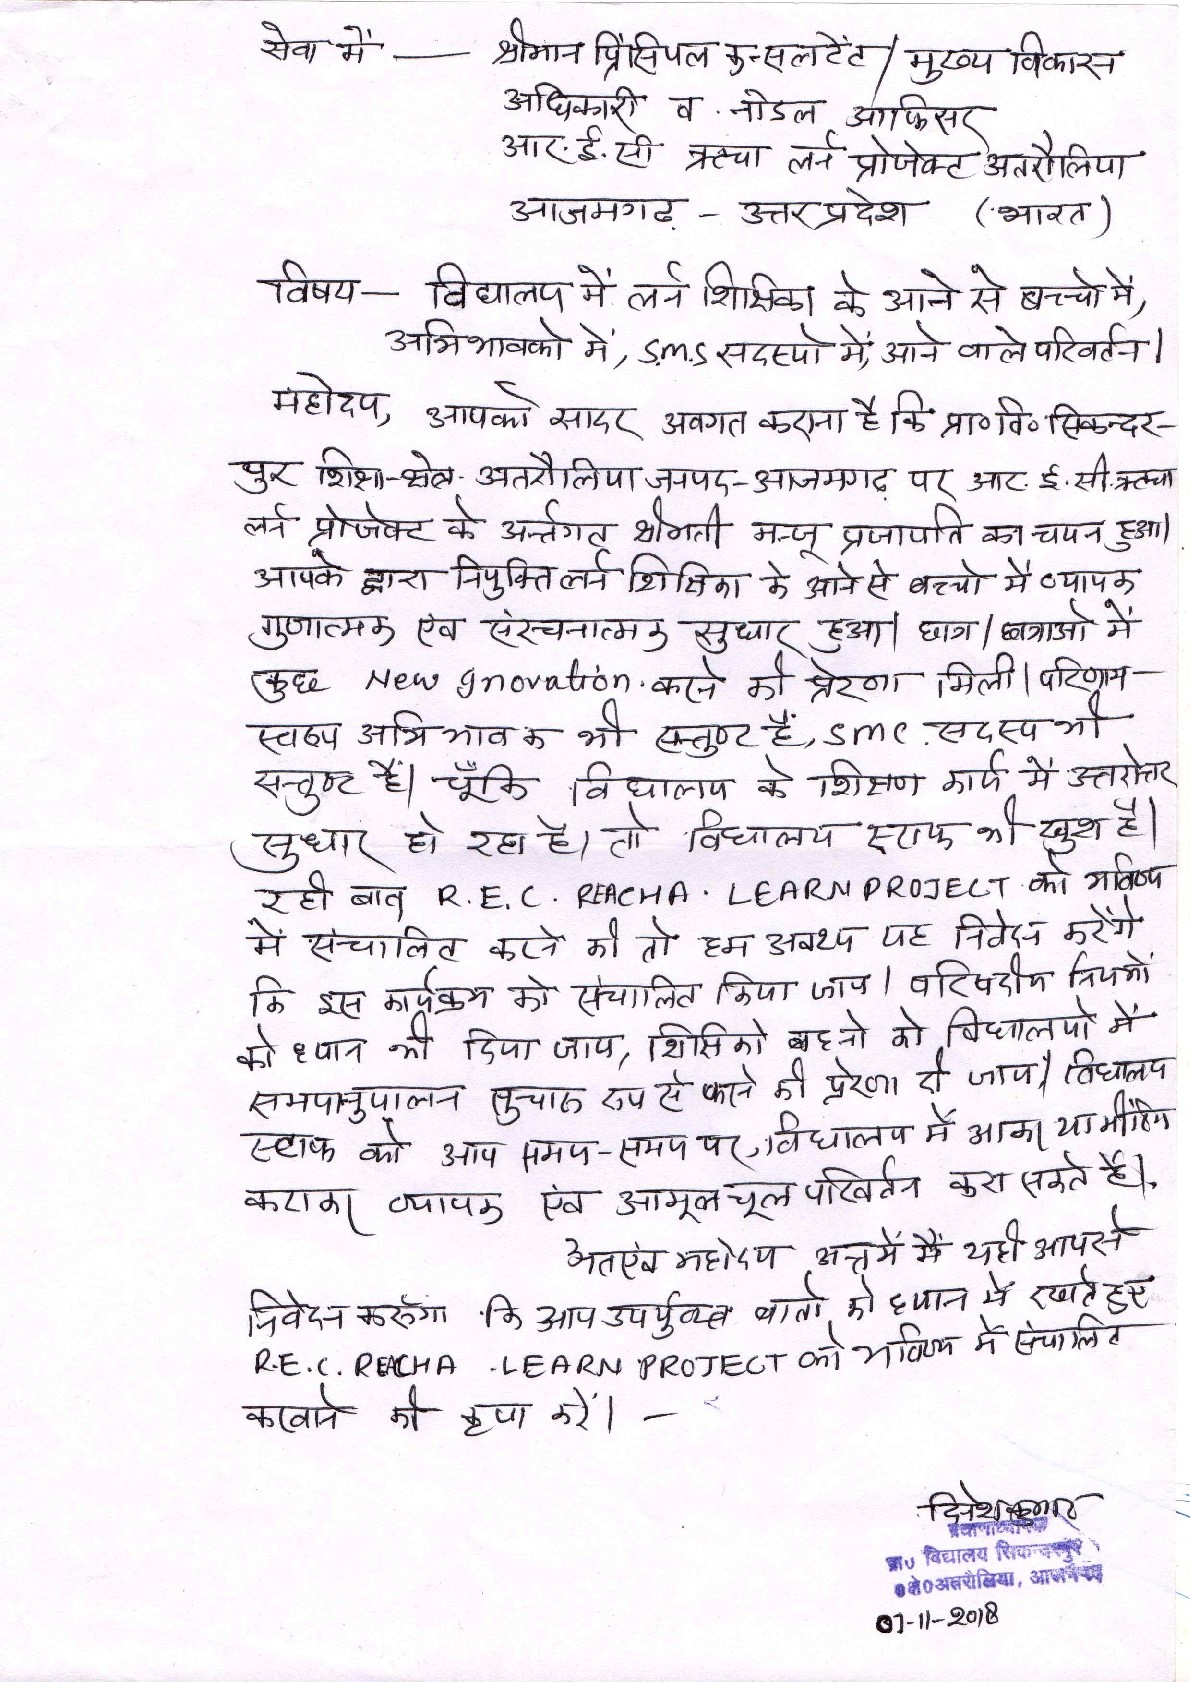 सेवा में — श्रीमान प्रिंसिपल कन्सलटेंट/मुख्य विकास
अधिकारी व नोडल आफिसर
आर.ई.सी ऋत्चा लर्न प्रोजेक्ट अतरौलिया
आजमगढ़ – उत्तर प्रदेश (भारत)
विषय — विद्यालय में लर्न शिक्षिका के आने से बच्चो में,
अभिभावको में, S.M.S सदस्यो में, आने वाले परिवर्तन।
महोदय, आपको सादर अवगत कराना है कि प्रा०वि० सिकन्दर-
पुर शिक्षा-क्षेत्र अतरौलिया जनपद-आजमगढ़ पर आर.ई.सी. ऋत्चा
लर्न प्रोजेक्ट के अर्न्तगत श्रीमती मन्जू प्रजापति का चयन हुआ।
आपके द्वारा नियुक्ति लर्न शिक्षिका के आने से बच्चो में व्यापक
गुणात्मक एंव संरचनात्मक सुधार हुआ। छात्र/छात्राओ में
कुछ New Gnovation. करने की प्रेरणा मिली। परिणाम-
स्वरूप अभिभावक भी सन्तुष्ट हैं, SMC. सदस्य भी
सन्तुष्ट हैं। चूँकि विद्यालय के शिक्षण कार्य में उत्तरोत्तर
सुधार हो रहा है। तो विद्यालय स्टाफ भी खुश है।
रही बात R.E.C. REACHA. LEARN PROJECT को भविष्य
में संचालित करने की तो हम अवश्य यह निवेदन करेंगे
कि इस कार्यक्रम को संचालित किया जाय। परिषदीय नियमों
को ध्यान भी दिया जाय, शिक्षिको बहनो को विद्यालयो में
समयानुपालन सुचारू रूप से करने की प्रेरणा दी जाय। विद्यालय
स्टाफ को आप समय-समय पर, विद्यालय में आकर या मीटिंग
कराकर व्यापक एंव आमूलचूल परिवर्तन करा सकते हैं।
अतएंव महोदय अन्त में मैं यही आपसे
निवेदन करूँगा कि आप उपर्युक्त बातो को ध्यान में रखते हुए
R.E.C. REACHA .LEARN PROJECT को भविष्य में संचालित
करवाने की कृपा करें। —
दिनेश कुमार
प्रधानाध्यापक
प्रा० विद्यालय सिकन्दरपुर
क्षे०अतरौलिया, आजमगढ़
07-11-2018